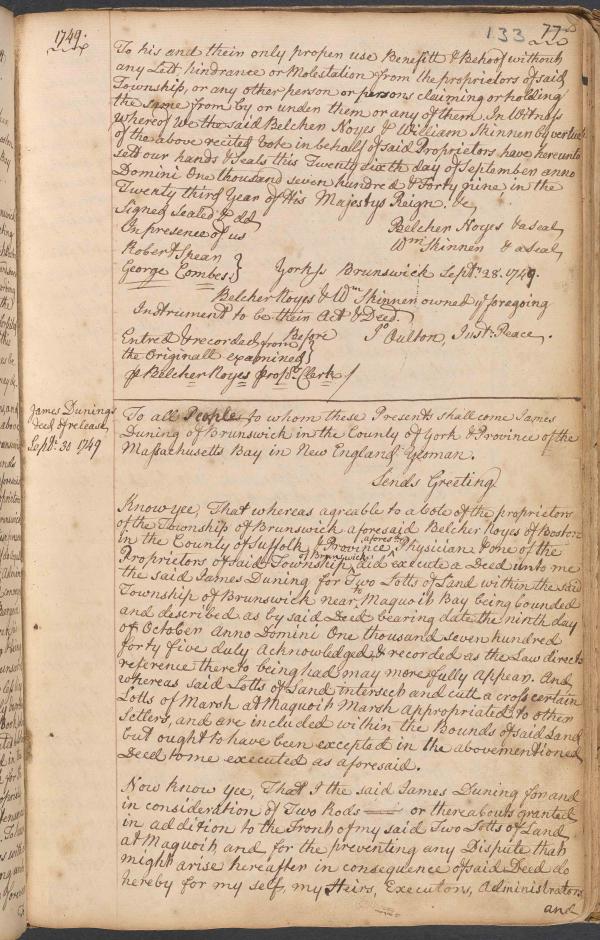 1749.
133 77
To his and their only proper use Benefitt & Behoof without
any Lett, hindrance or Molestation from the proprietors of said
Township, or any other person or persons claiming or holding
the same from by or under them or any of them. In Witness
whereof we the said Belcher Noyes & William Skinner by vertue
of the above recited Vote in behalf of said Proprietors have hereunto
sett our hands & Seals this Twenty sixth day of September anno
Domini One thousand seven hundred & Forty nine in the
Twenty third Year of His Majestys Reign. &c
Signed Sealed & dd
In presence of us
Belcher Noyes & a seal
Wm Skinner & a Seal
Robert Spear
George Combes
York ss Brunswick Sept. 28. 1749.
Belcher Noyes & Wm Skinner owned ye foregoing
Instrument to be their Act & Deed.
Before Jo Oulton, Just: Peace.
Entred & recorded from
the Originall examined
p Belcher Noyes Prop.rs Clerk
James Dunings
deed of release,
Sept. 30 1749
To all People to whom these Presents shall come James
Duning of Brunswick in the County of York & Province of the
Massachusetts Bay in New England Yeoman.
Sends Greeting
Know yee, That whereas agreable to a Vote of the proprietors
of the Township of Brunswick aforesaid Belcher Noyes of Boston
in the County of Suffolk & Province aforesd Physician & one of the
Proprietors of said Township of Brunswick did execute a Deed unto me
the said James Duning for Two Lotts of Land within the said
Township of Brunswick near to Maquoit Bay being bounded
and described as by said Deed bearing date the ninth day
of October Anno Domini One thousand seven hundred
forty five duly Acknowledged & recorded as the Law directs
reference thereto being had may more fully Appear. And
whereas said Lotts of Land intersect and cutt a cross certain
Lotts of Marsh at Maquoit Marsh appropriated to other
Setlers, and are included within the Bounds of said Land
but ought to have been excepted in the abovementioned
Deed to me executed as aforesaid.
Now know yee, That I the said James Duning for and
in consideration of Two Rods or thereabouts granted
in addition to the Front of my said Two Lotts of Land
at Maquoit and for the preventing any Dispute that
might arise hereafter in consequence of said Deed do
hereby for my self, my Heirs, Executors, Administrators
and